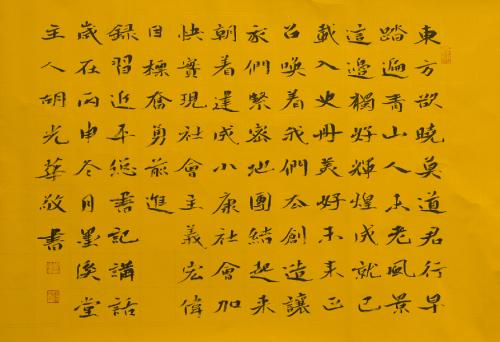 東方欲曉莫道君行早
踏遍青山人未老風景
這邊獨好輝煌成就已
載入史冊美好未來正
召喚着我們去創造讓
我們緊密地團結起來
朝着建成小康社會加
快實現社會主義宏偉
目標奮勇前進
錄習近平總書記講話
歲在丙申冬月墨溪堂
主人胡光華敬書